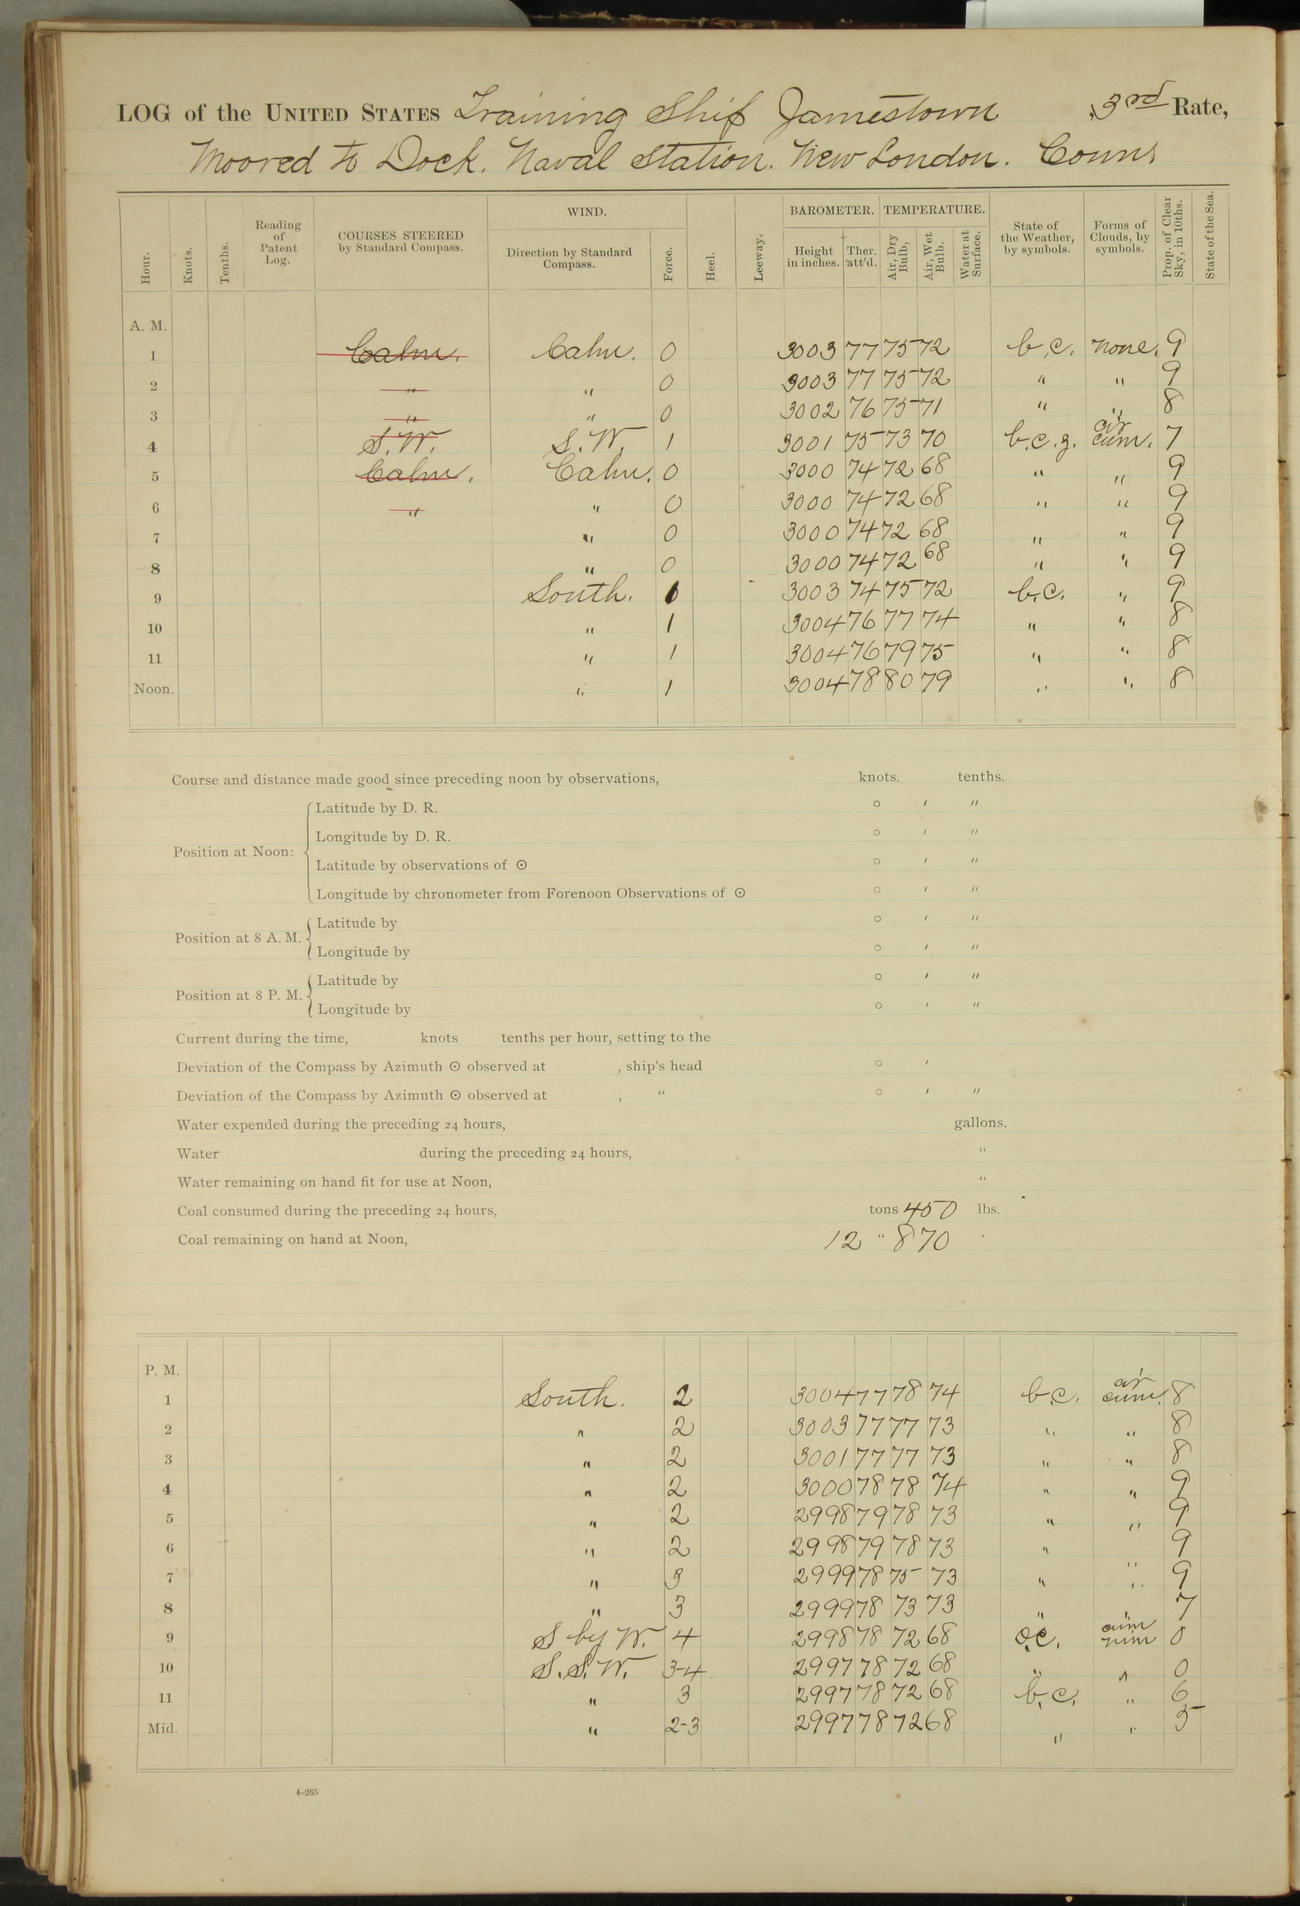 LOG of the UNITED STATES Training Ship Jamestown , 3rd Rate,
Moored to Dock. Naval Station. New London. Conn.
WIND. BAROMETER. TEMPERATURE.
Hour. Knots. Tenths. Reading of Patent Log. COURSES STEERED by Standard Compass. Direction by Standard Compass. Force. Heel. Leeway. Height in inches. Ther. att'd. Air, Dry Bulb. Air, Wet Bulb. Water at Surface. State of the Weather, by symbols. Forms of Clouds, by symbols. Prop. of Clear Sky, in 10ths. State of the Sea.
A. M.
1 Calm. Calm. 0 3003 77 75 72 b.c. none. 9
2 " " 0 3003 77 75 72 " " 9
3 " " 0 3002 76 75 71 " " 8
4 S.W. S.W. 1 3001 75 73 70 b.c.z. cir cum. 7
5 Calm. Calm. 0 3000 74 72 68 " " 9
6 " " 0 3000 74 72 68 " " 9
7 " 0 3000 74 72 68 " " 9
8 " 0 3000 74 72 68 " " 9
9 South. 1 3003 74 75 72 b.c. " 9
10 " 1 3004 76 77 74 " " 8
11 " 1 3004 76 79 75 " " 8
Noon. " 1 3004 78 80 79 " " 8
Course and distance made good since preceding noon by observations, knots. tenths.
Position at Noon:
Latitude by D. R. ° ′ ″
Longitude by D. R. ° ′ ″
Latitude by observations of ☉ ° ′ ″
Longitude by chronometer from Forenoon Observations of ☉ ° ′ ″
Position at 8 A. M.
Latitude by ° ′ ″
Longitude by ° ′ ″
Position at 8 P. M.
Latitude by ° ′ ″
Longitude by ° ′ ″
Current during the time, knots tenths per hour, setting to the
Deviation of the Compass by Azimuth ☉ observed at , ship's head ° ′
Deviation of the Compass by Azimuth ☉ observed at , " ° ′ ″
Water expended during the preceding 24 hours, gallons.
Water during the preceding 24 hours, "
Water remaining on hand fit for use at Noon, "
Coal consumed during the preceding 24 hours, tons 450 lbs.
Coal remaining on hand at Noon, 12 " 870
P. M.
1 South. 2 3004 77 78 74 b.c. cir cum. 8
2 " 2 3003 77 77 73 " " 8
3 " 2 3001 77 77 73 " " 8
4 " 2 3000 78 78 74 " " 9
5 " 2 2998 79 78 73 " " 9
6 " 2 2998 79 78 73 " " 9
7 " 3 2999 78 75 73 " " 9
8 " 3 2999 78 73 73 " " 7
9 S by W. 4 2998 78 72 68 o.c. cum nim 0
10 S.S.W. 3-4 2997 78 72 68 " " 0
11 " 3 2997 78 72 68 b.c. " 6
Mid. " 2-3 2997 78 72 68 " " 5
4-265